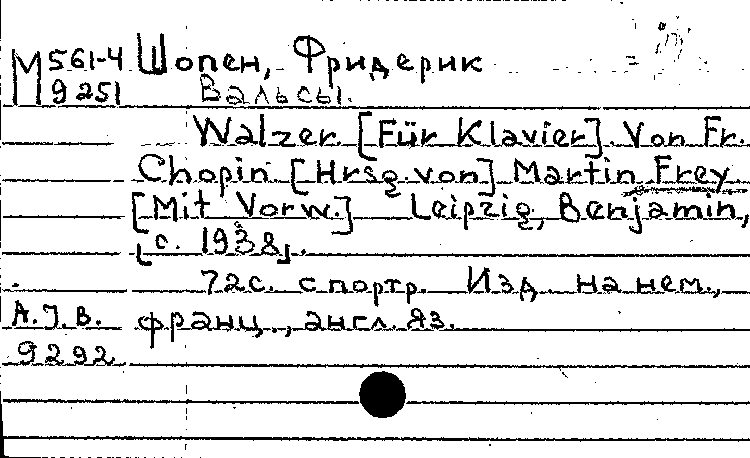 М 561-4 Шопен, Фридерик
9251 Вальсы.
Walzer [Für Klavier]. Von Fr.
Chopin [Hrsg. von] Martin Frey.
[Mit Vorw.] Leipzig, Benjamin,
[c. 1938].
72с. с портр. Изд. на нем.,
A.J.B. франц., англ. яз.
9292